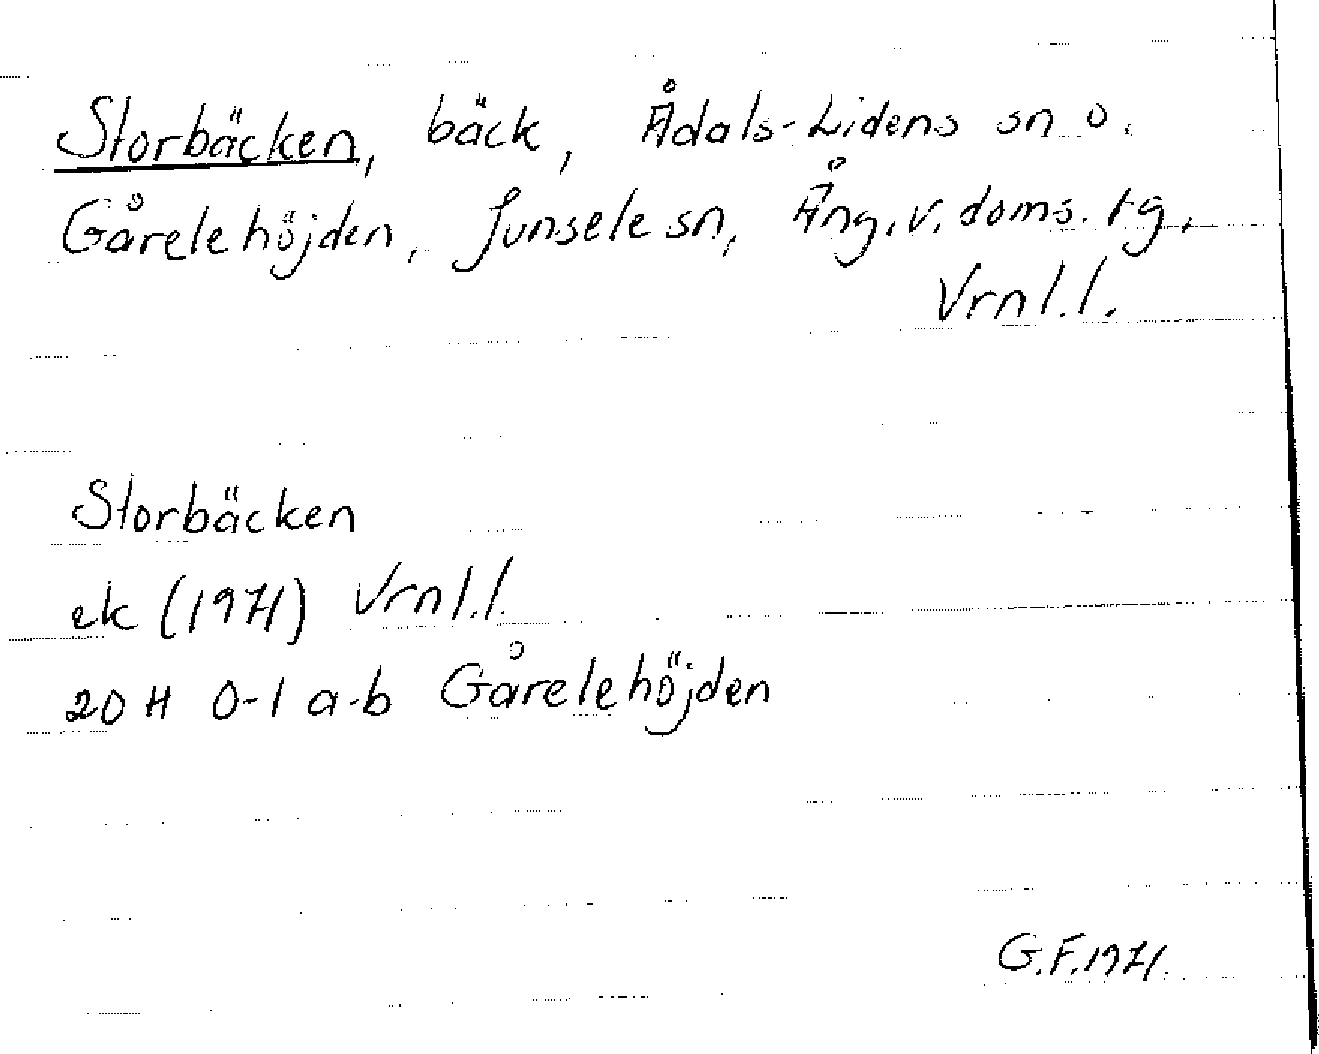 Storbäcken, bäck, Ådals-Lidens sn o.
Gårelehöjden, Junsele sn, Ång.v.doms.tg,
Vrnl.l.
Storbäcken
ek (1971) Vrnl.l.
20 H 0-1 a-b Gårelehöjden
G.F.1971.